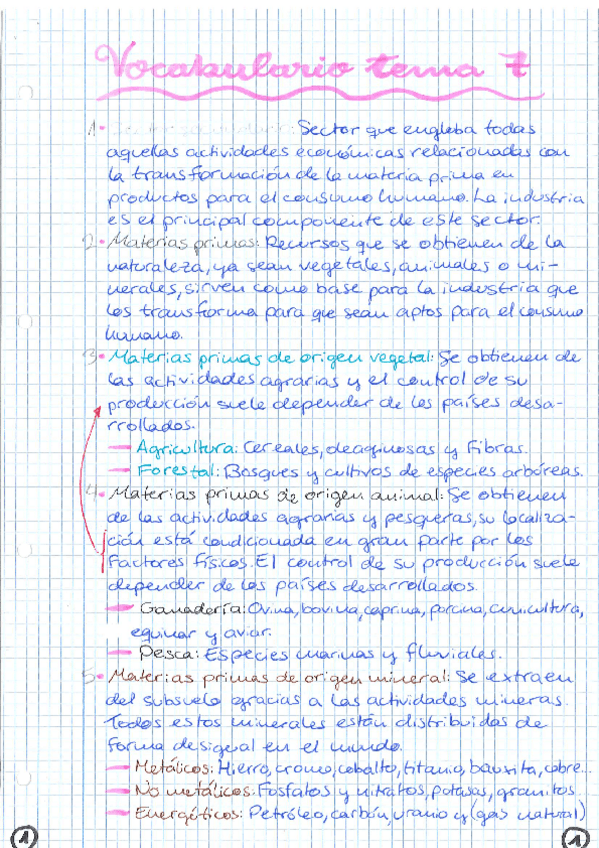 Vocabulario tema 7
1- Sector que engloba todas
aquellas actividades económicas relacionadas con
la transformación de la materia prima en
productos para el consumo humano. La industria
es el principal componente de este sector.
2- Materias primas: Recursos que se obtienen de la
naturaleza, ya sean vegetales, animales o mi-
nerales, sirven como base para la industria que
los transforma para que sean aptos para el consumo
humano.
3- Materias primas de origen vegetal: Se obtienen de
las actividades agrarias y el control de su
producción suele depender de los países desa-
rrollados.
— Agricultura: Cereales, oleaginosas y Fibras.
— Forestal: Bosques y cultivos de especies arbóreas.
4- Materias primas de origen animal: Se obtienen
de las actividades agrarias y pesqueras, su localiza-
ción está condicionada en gran parte por los
factores físicos. El control de su producción suele
depender de los países desarrollados.
— Ganadería: Ovina, bovina, caprina, porcina, cunicultura,
equinar y aviar.
— Pesca: Especies marinas y fluviales.
5- Materias primas de origen mineral: Se extraen
del subsuelo gracias a las actividades mineras.
Todos estos minerales están distribuidos de
forma desigual en el mundo.
— Metálicos: Hierro, cromo, cobalto, titanio, bauxita, cobre...
— No metálicos: Fosfatos y nitratos, potasas, granitos...
— Energéticos: Petróleo, carbón, uranio y (gas natural)
1 1